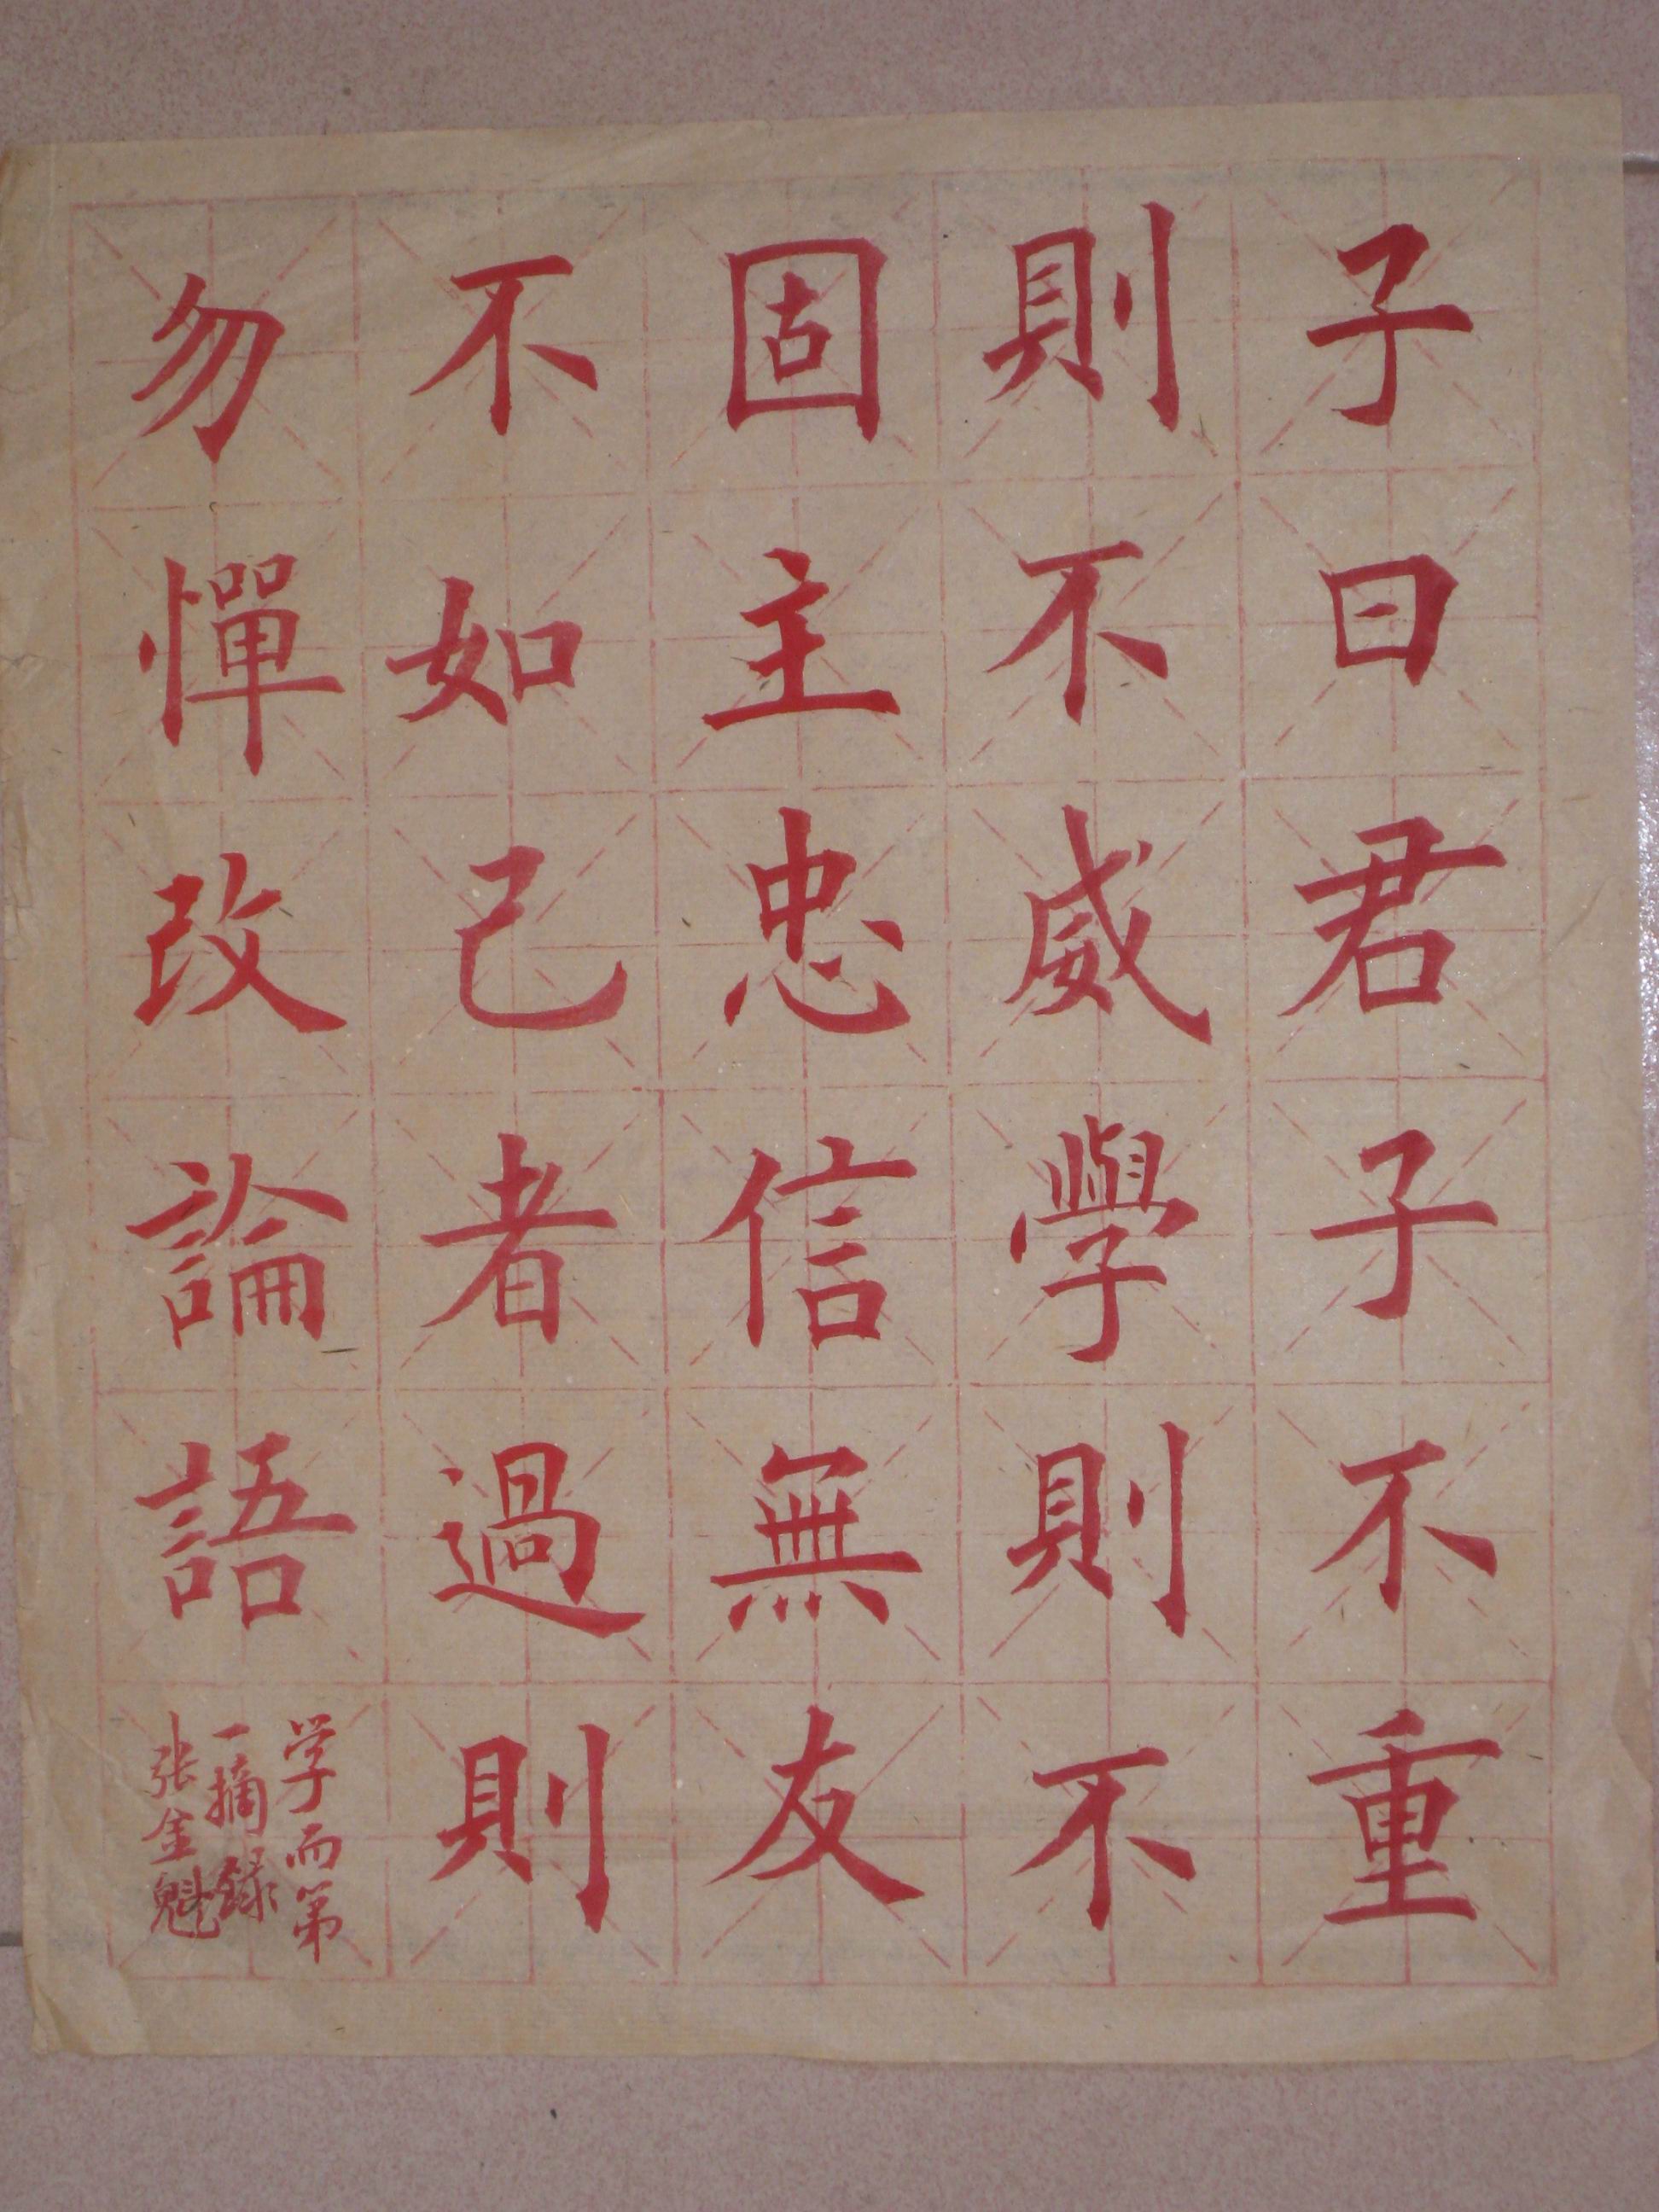 子曰君子不重
則不威學則不
固主忠信無友
不如己者過則
勿憚改論語
学而第
一摘錄
张金魁